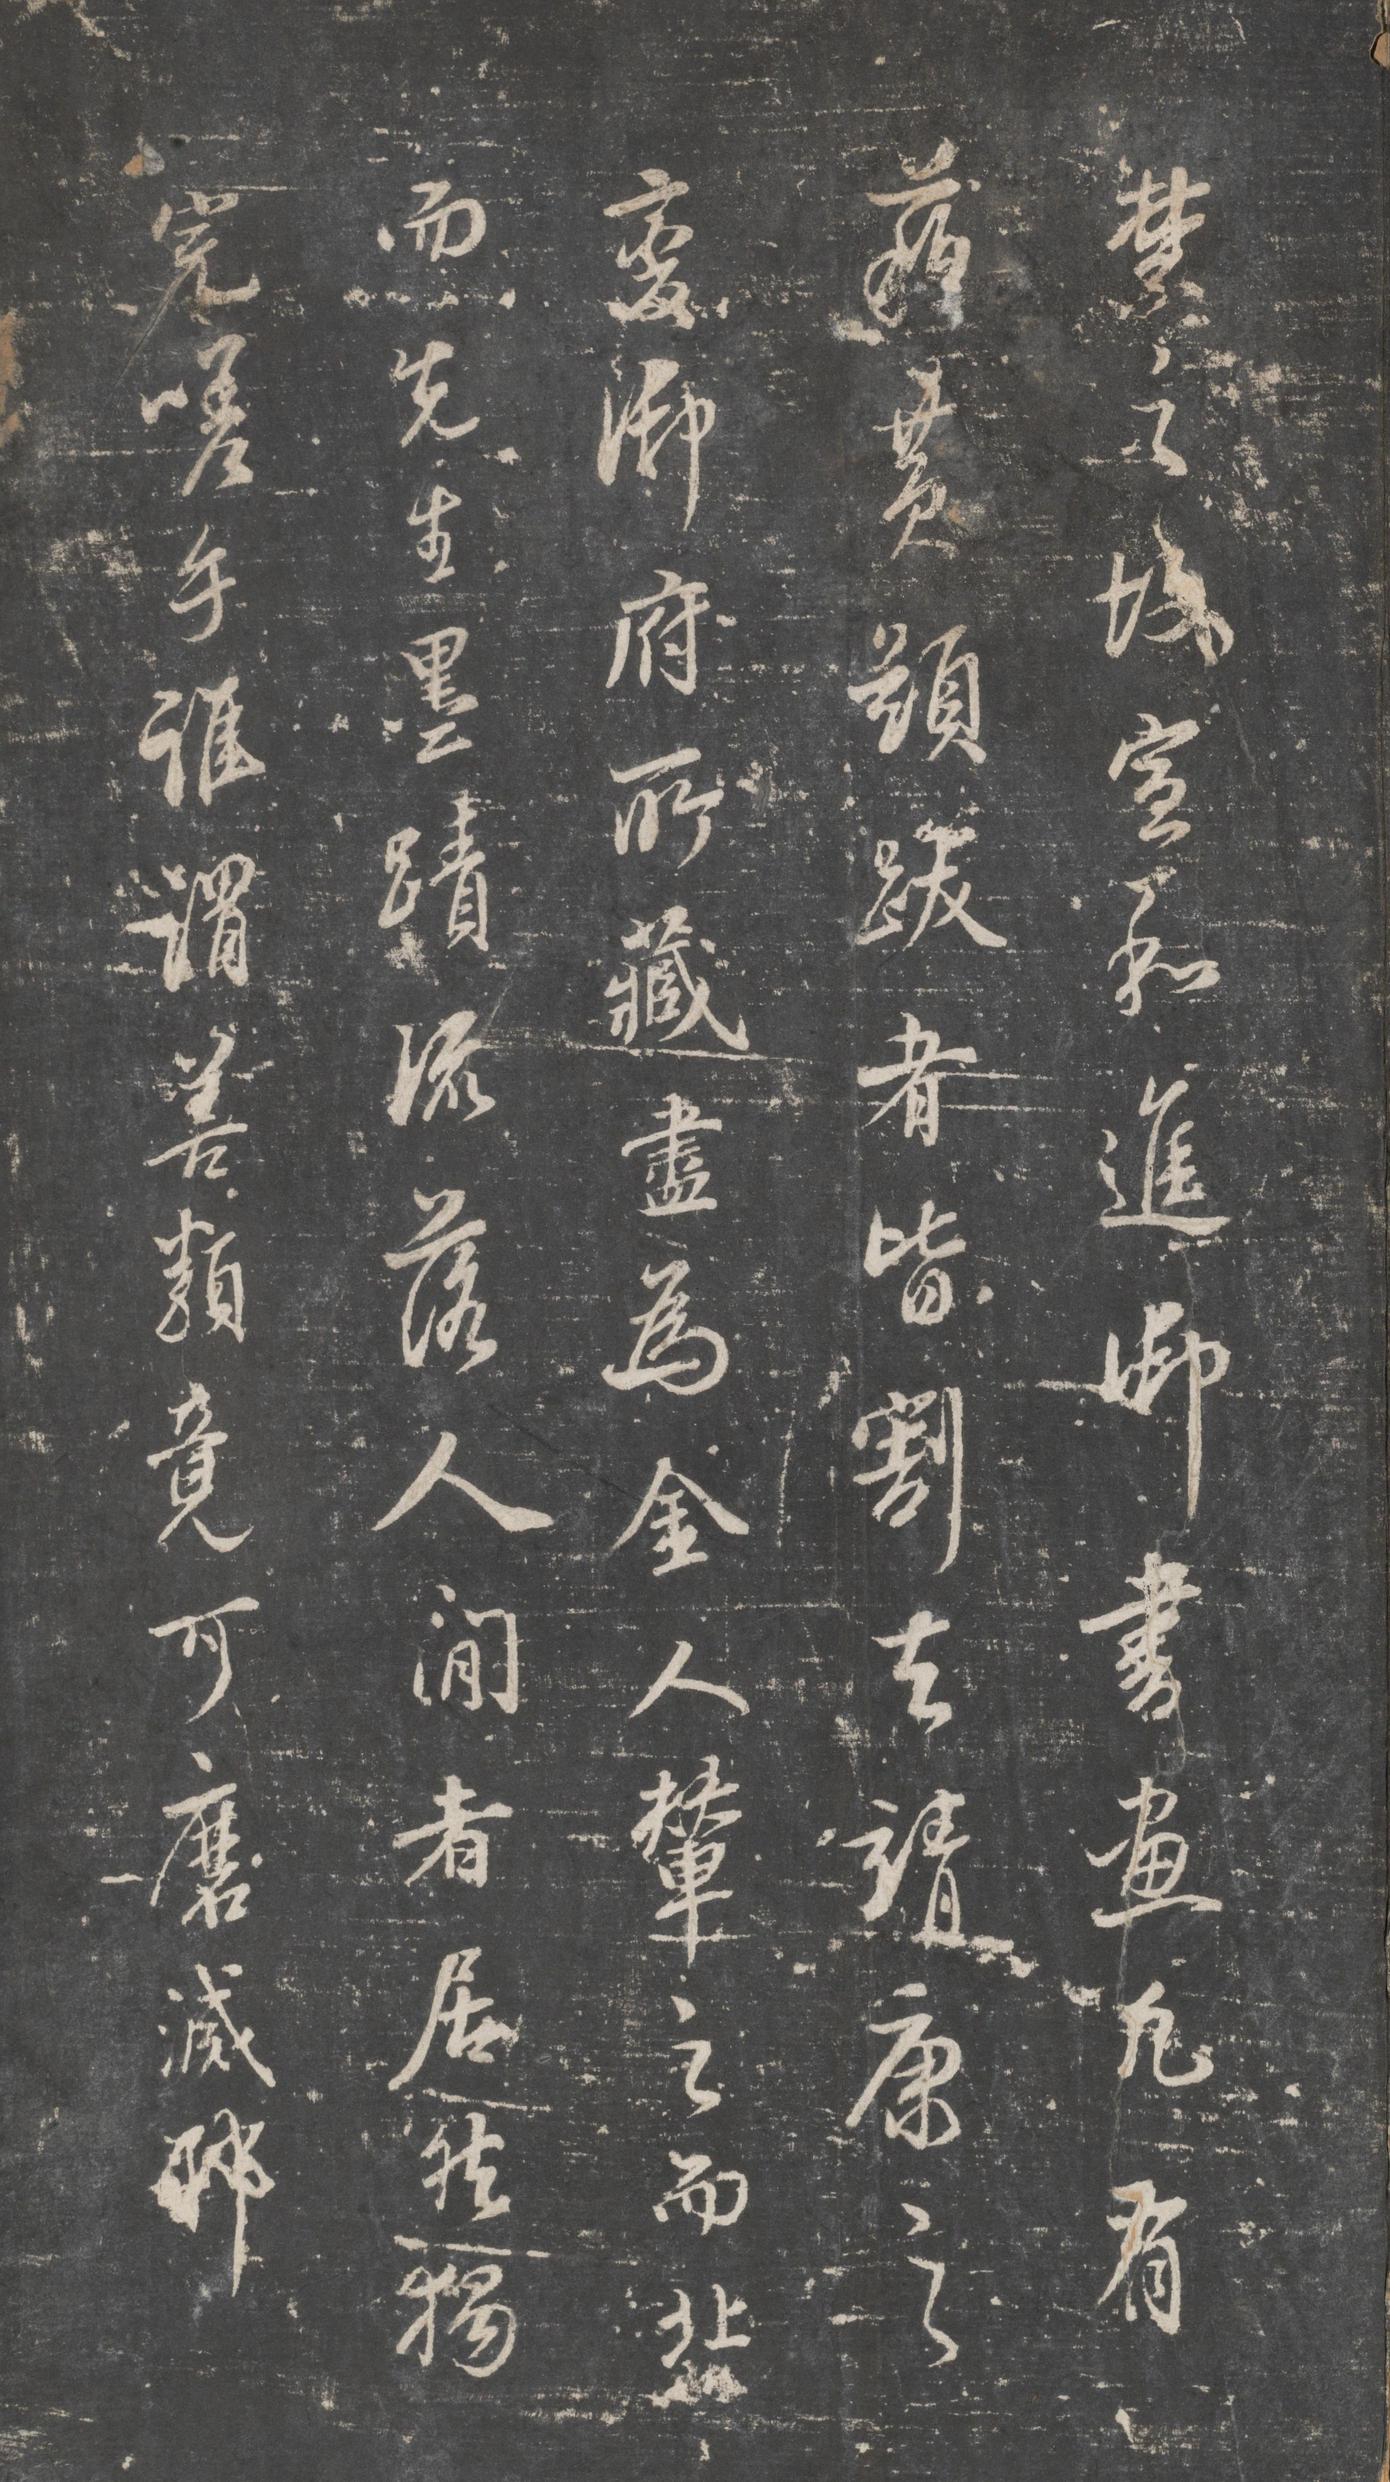 禁之故宣和進御書畫凡有
蘇黃題跋者皆割去靖康之
變御府所藏盡為金人輦之而北
而先生墨蹟流落人間者居然獨
完嗟乎誰謂善類竟可磨滅耶